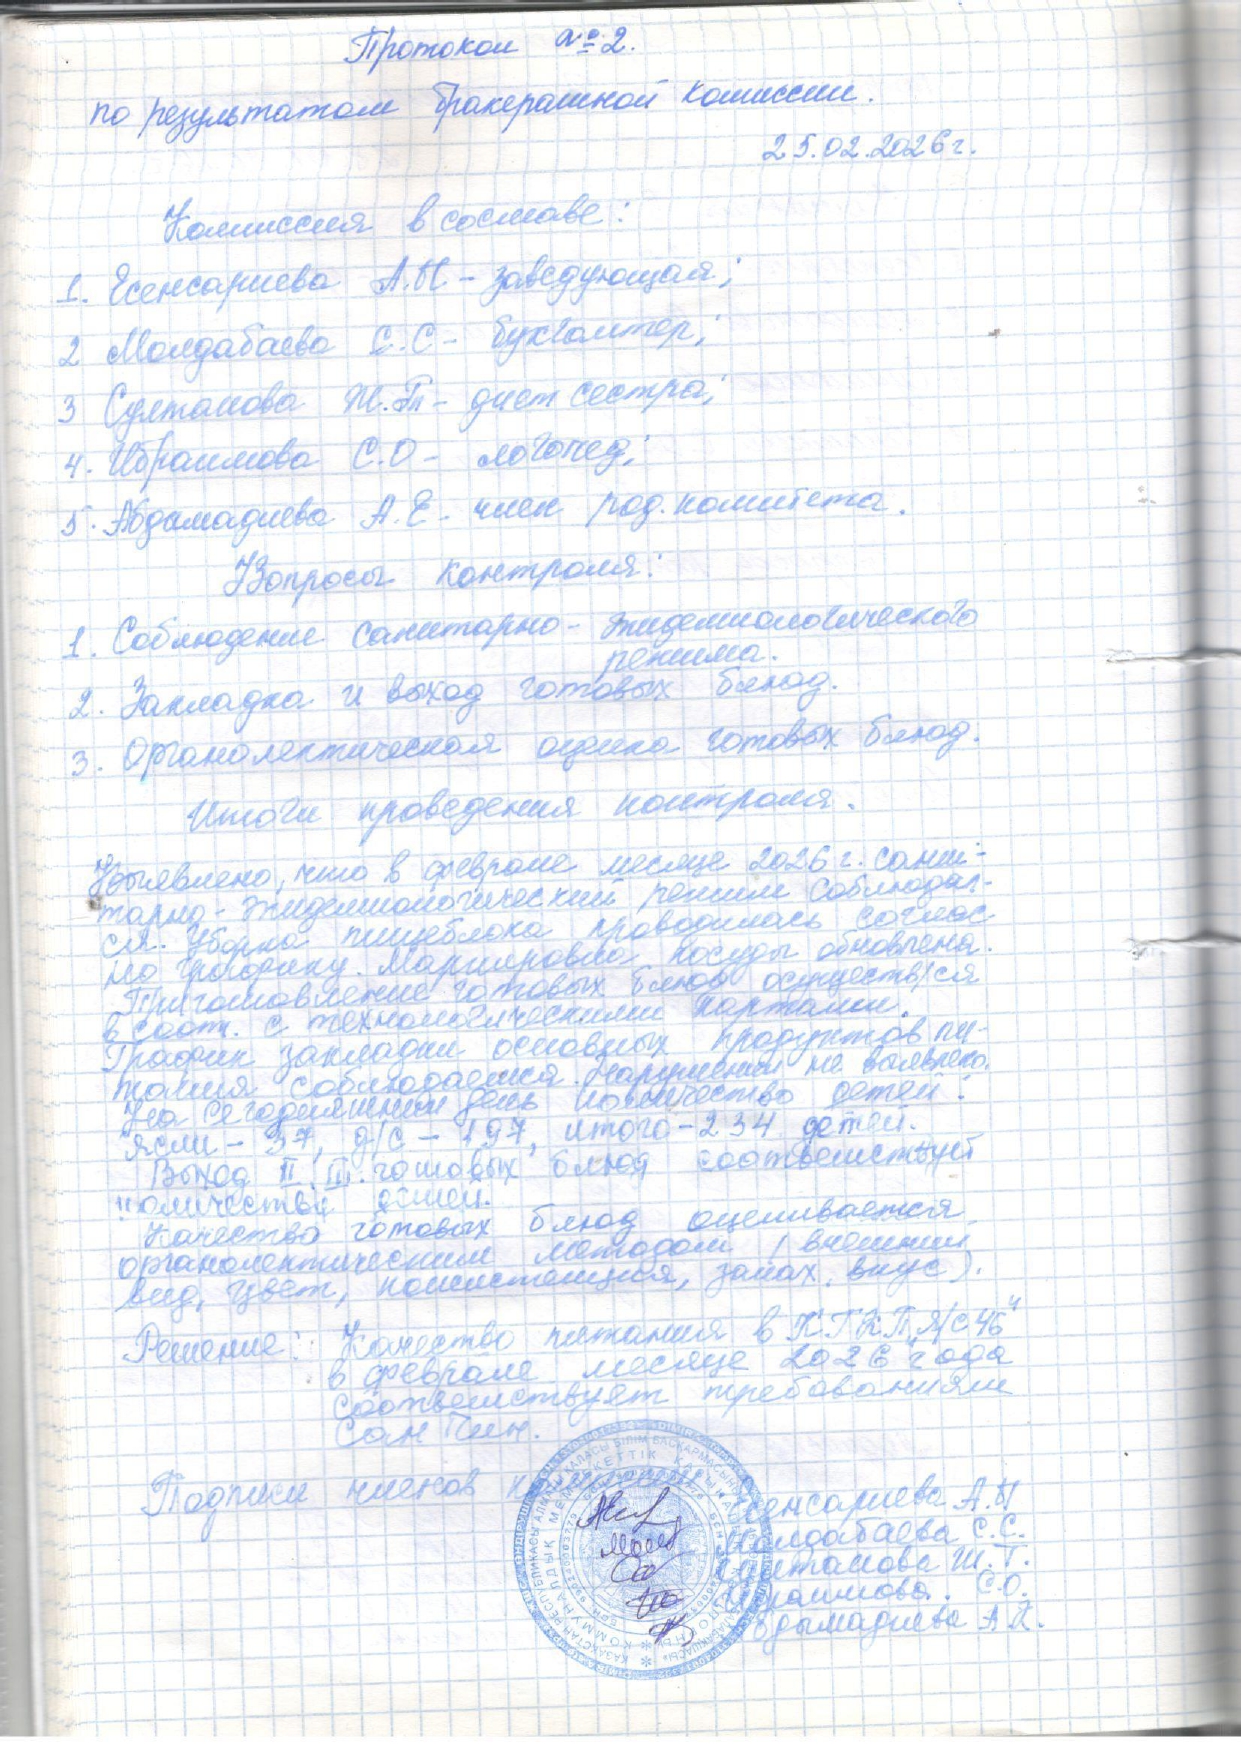 Протокол №2.
по результатам бракеражной комиссии.
25.02.2026г.
Комиссия в составе:
1. Есенсариева А.Ы - заведующая;
2 Молдабаева С.С - бухгалтер;
3 Султанова Ж.Т - диет сестра;
4. Ибраимова С.О - логопед;
5. Абдымадиева А.Е - член род. комитета.
Вопросы контроля:
1. Соблюдение санитарно-эпидемиологического
режима.
2. Закладка и выход готовых блюд.
3. Органолептическая оценка готовых блюд.
Итоги проведения контроля.
Выявлено, что в феврале месяце 2026 г. сани-
тарно-эпидемиологический режим соблюдал-
ся. Уборка пищеблока проводилась соглас
но графику. Маркировка посуды обновлена.
Приготовление готовых блюд осуществ/ся
в соотв. с технологическими картами.
График закладки основных продуктов пи-
тания соблюдается. Нарушений не выявлено.
На сегодняшний день количество детей:
ясли - 37, д/с - 197, итого - 234 детей.
Выход II, III готовых блюд соответствует
количеству детей.
Качество готовых блюд оценивается
органолептическим методом (внешний
вид, цвет, консистенция, запах, вкус).
Решение: Качество питания в КГКП "Я/с 46"
в феврале месяце 2026 года
соответствует требованиям
СанПин.
Подписи членов
Есенсариева А.Ы
Молдабаева С.С.
Султанова Ж.Т.
Ибраимова С.О.
Абдымадиева А.Е.